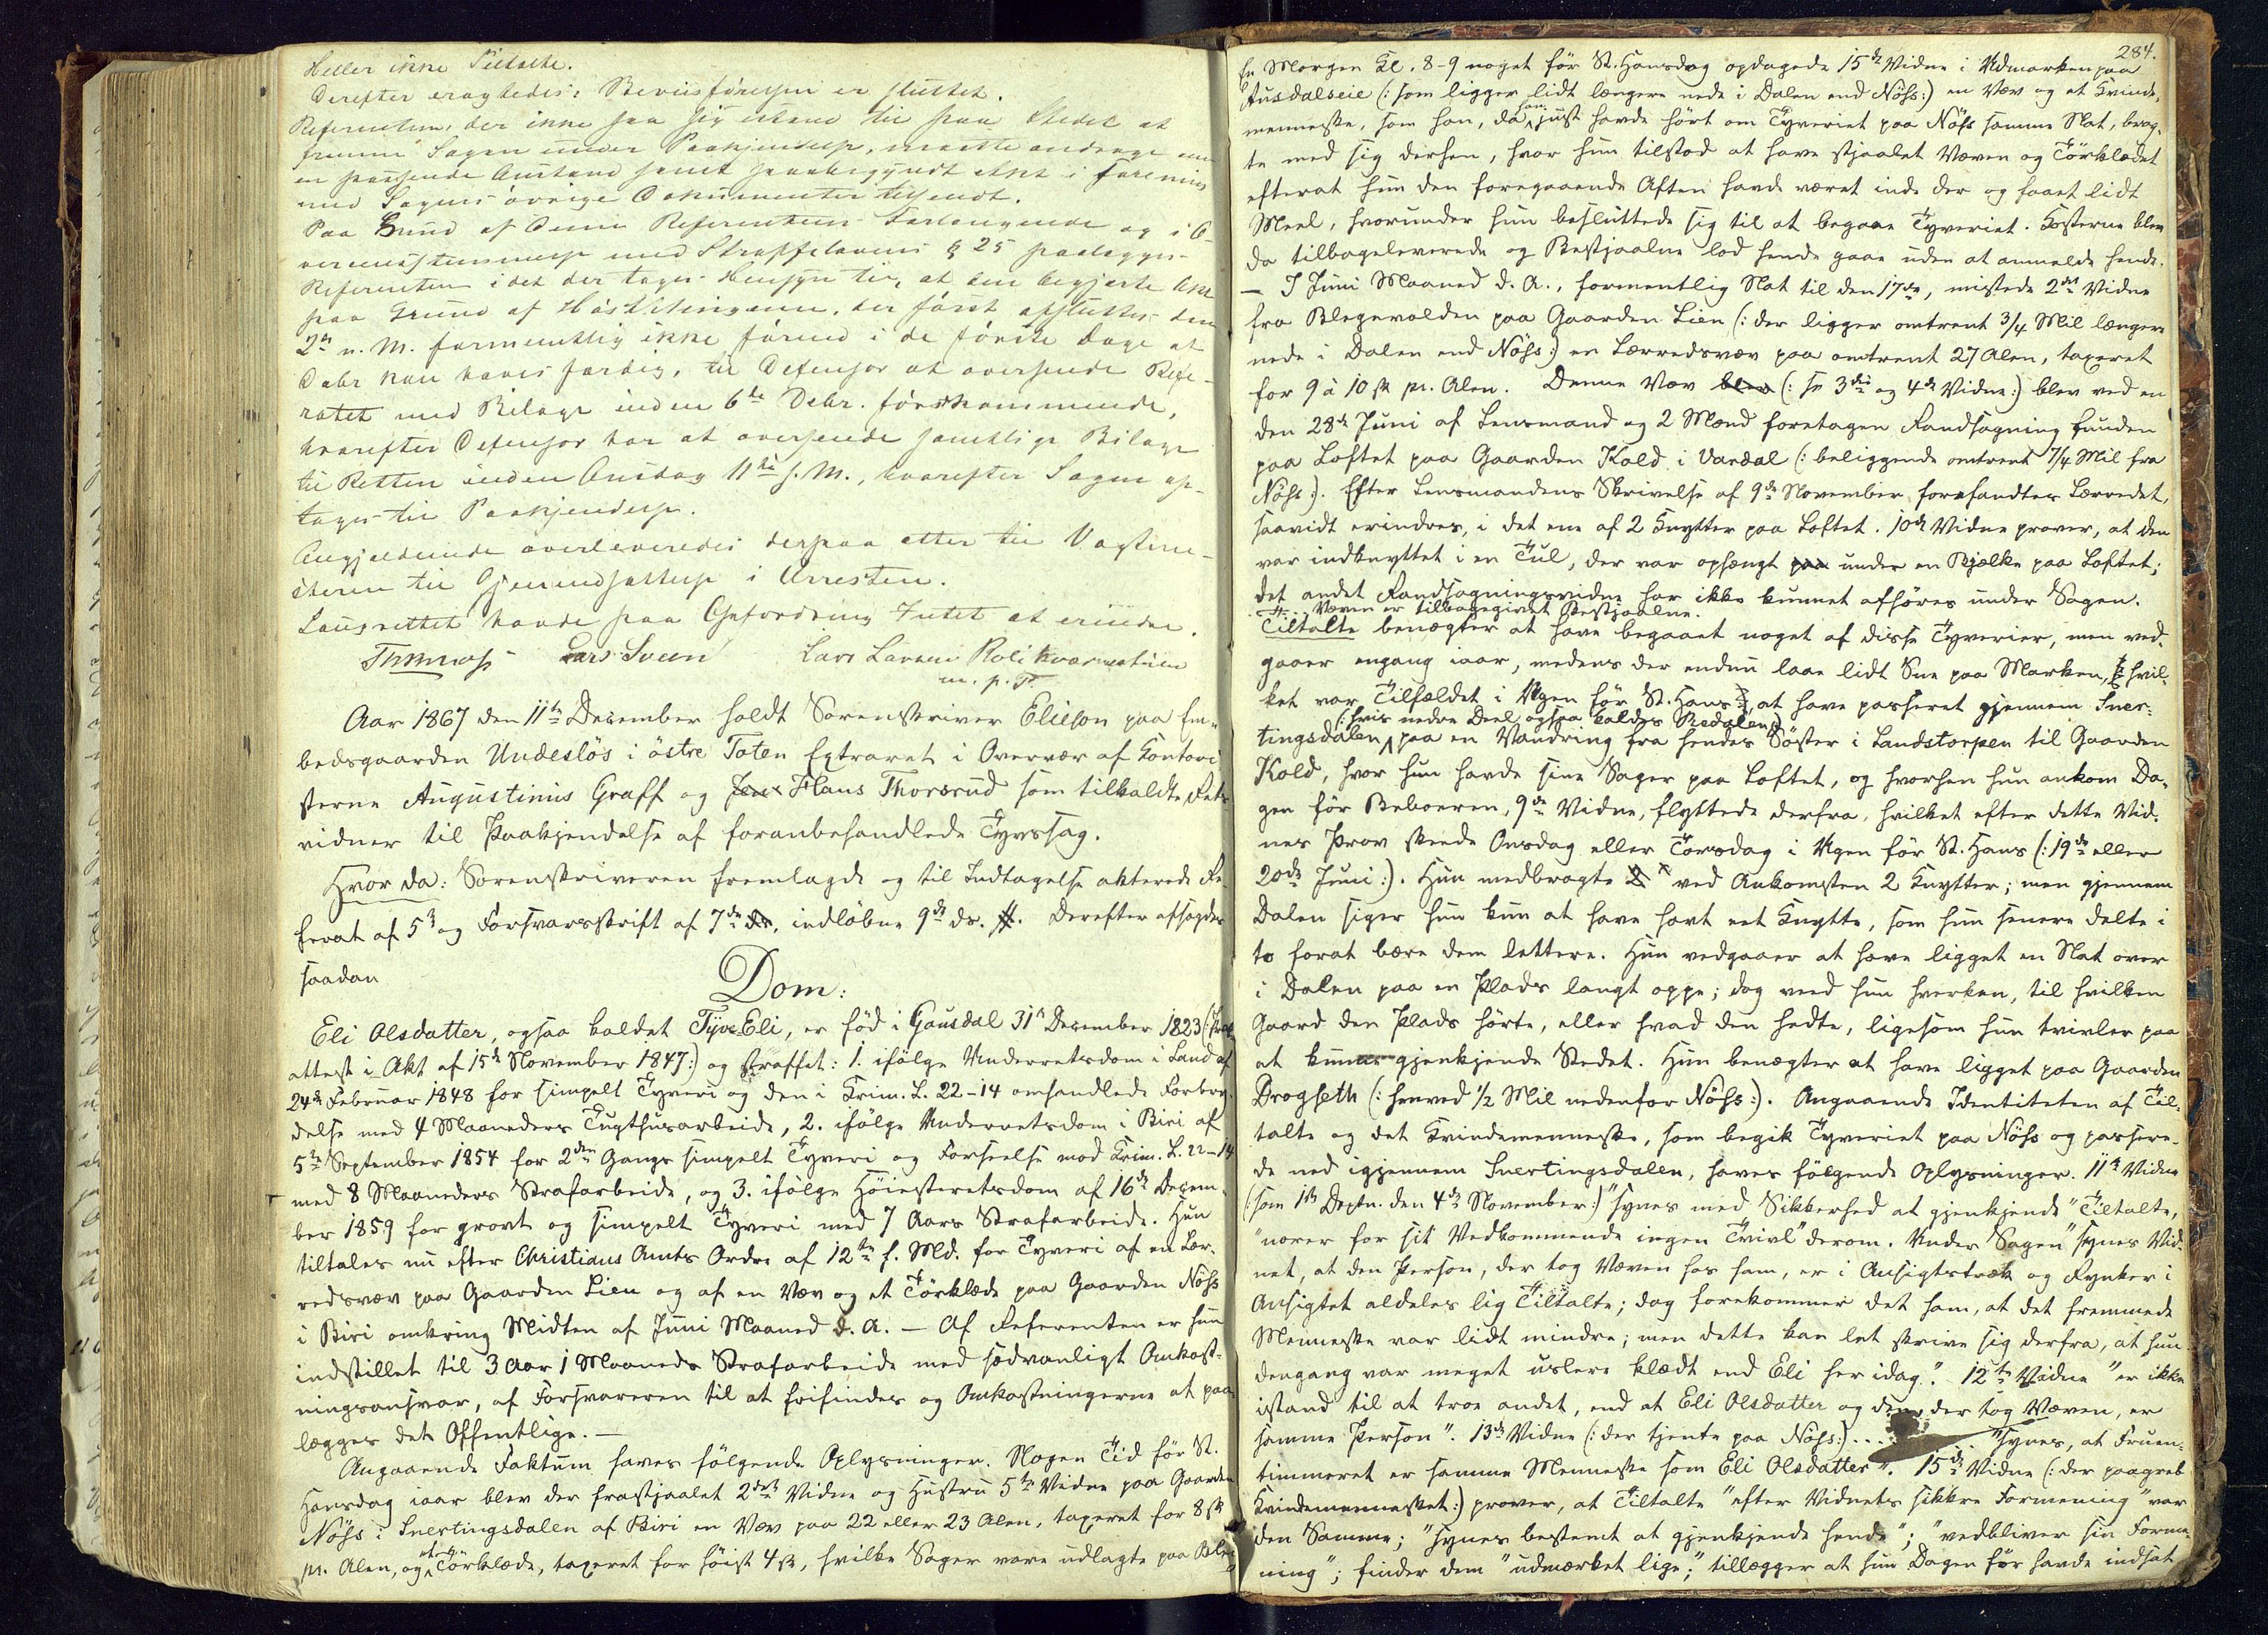 Heller ikke Tiltalte.
Derefter eragtedes: Beviisførelsen er sluttet.
Referenten, der ikke saa sig istand til paa Stedet at
fremme Sagen under Paakjendelse, maatte andrage om
en passende Anstand samt paabegyndt Akt i Forening
med Sagens øvrige Dokumenter tilsendt.
Paa Grund af denne Referentens Forlangende og i O-
verensstemmelse med Straffelovens § 25 paalægges
Referenten idet der tages Hensyn til, at den begjærte Akt
paa Grund af Høstthingene, der først afsluttes den
2den n. M. formentlig ikke førend i de første Dage af
Debr kan haves færdig, til Defensor at oversende Refe-
ratet med Bilage inden 6te Debr. førstkommende,
hvorefter Defensor har at oversende samtlige Bilage
til Retten inden Onsdag 11te s. M., hvorefter Sagen op-
tages til Paakjendelse.
Angjældende overleveredes derpaa atter til Vagtme-
steren til Gjenindsættelse i Arresten.
Laugrettet havde paa Opfordring Intet at erindre.
Lars Sveen Lars Larsen Rolikvarneten
m. p. P.
Aar 1867 den 11te December holdt Sorenskriver Elieson paa Em-
bedsgaarden Undesløs i østre Toten Extraret i Overvær af Kontori-
sterne Augustinus Graff og Jens Hans Thorsrud som tilkaldte Rets-
vidner til Paakjendelse af foranbehandlede Tyvssag.
Hvor da: Sorenskriveren fremlagde og til Indtagelse akterede Re-
ferat af 5te og Forsvarsskrift af 7de ds, indløbne 9de ds. #. Derefter afsagdes
saadan
Dom:
Eli Olsdatter, ogsaa kaldet Tyve-Eli, er fød i Gausdal 31te December 1823 (:Præste
attest i Akt af 15de November 1847:) og straffet: 1. ifølge Underretsdom i Land af
24de Februar 1848 for simpelt Tyveri og den i Krim. L. 22-14 omhandlede Forbry-
delse med 4 Maaneders Tugthusarbeide, 2. ifølge Underretsdom i Biri af
5te September 1854 for 2den Gangs simpelt Tyveri og Forseelse mod Krim. L. 22-14
med 8 Maaneders Strafarbeide, og 3. ifølge Høiesteretsdom af 16de Decem-
ber 1859 for grovt og simpelt Tyveri med 7 Aars Strafarbeide. Hun
tiltales nu efter Christians Amts Ordre af 12te f. Md. for Tyveri af en Lær-
redsvæv paa Gaarden Lien og af en Væv og et Tørklæde paa Gaarden Nøss
i Biri omkring Midten af Juni Maaned d. A. — Af Referenten er hun
indstillet til 3 Aar 1 Maaneds Strafarbeide med sædvanligt Omkost-
ningsansvar, af Forsvareren til at frifindes og Omkostningerne at paa-
lægges det Offentlige. —
Angaaende Faktum haves følgende Oplysninger. Nogen Tid før St.
Hansdag iaar blev der frastjaalet 2det Vidne og Hustru 5te Vidne paa Gaarden
Nøss i Snertingsdalen af Biri en Væv paa 22 eller 23 Alen, taxeret for 8 sk
pr. Alen, og et Tørklæde, taxeret for høist 4 sk, hvilke Sager vare udlagte paa Bleg
284.
En Morgen Kl. 8-9 noget før St. Hansdag opdagede 15de Vidne i Udmarken paa
Ausdalseie (: som ligger lidt længere nede i Dalen end Nøss:) en Væv og et Kvinde-
menneske, som han, da han just havde hørt om Tyveriet paa Nøss samme Nat, brag-
te med sig derhen, hvor hun tilstod at have stjaalet Væven og Tørklædet
efterat hun den foregaaende Aften havde været inde der og faaet lidt
Meel, hvorunder hun besluttede sig til at begaae Tyveriet. Kosterne blev
da tilbageleverede og Bestjaalne lod hende gaae uden at anmelde hende.
— I Juni Maaned d. A., formentlig Nat til den 17de, mistede 2det Vidne
fra Blegevolden paa Gaarden Lien (: der ligger omtrent 3/4 Mil længere
nede i Dalen end Nøss:) en Lærredsvæv paa omtrent 27 Alen, taxeret
for 9 à 10 sk pr. Alen. Denne Væv blev (: se 3die og 4de Vidne:) blev ved en
den 28de Juni af Lensmand og 2 Mænd foretagen Randsagning funden
paa Loftet paa Gaarden Kold i Vardal (: beliggende omtrent 7/4 Mil fra
Nøss:). Efter Lensmandens Skrivelse af 9de November forefandtes Lærredet,
saavidt erindres, i det ene af 2 Knytter paa Loftet. 10de Vidne prover, at den
var indknyttet i en Tul, der var ophængt paa under en Bjælke paa Loftet;
det andet Randsagningsvidne har ikke kunnet afhøres under Sagen.
#. Væven er tilbagegivet Bestjaalne.
Tiltalte benægter at have begaaet noget af disse Tyverier, men ved-
gaaer engang iaar, medens der endnu laae lidt Sne paa Marken, hvil-
ket var Tilfældet i Ugen før St. Hans, at have passeret gjennem Sner-
(: hvis nedre Deel ogsaa kaldes Redalen:)
tingsdalen, paa en Vandring fra hendes Søster i Landstorpen til Gaarden
Kold, hvor hun havde sine Sager paa Loftet, og hvorhen hun ankom Da-
gen før Beboeren, 9de Vidne, flyttede derfra, hvilket efter dette Vid-
nes Prov skeede Onsdag eller Torsdag i Ugen før St. Hans (: 19de eller
20de Juni:). Hun medbragte 2 ved Ankomsten 2 Knytter; men gjennem
Dalen siger hun kun at have havt eet Knytte, som hun senere delte i
to forat bære dem lettere. Hun vedgaaer at have ligget en Nat over
i Dalen paa en Plads langt oppe; dog veed hun hverken, til hvilken
Gaard den Plads hørte, eller hvad den hedte, ligesom hun tvivler paa
at kunne gjenkjende Stedet. Hun benægter at have ligget paa Gaarden
Drogseth (: henved 1/2 Mil nedenfor Nøss:). Angaaende Identiteten af Til-
talte og det Kvindemenneske, som begik Tyveriet paa Nøss og passere-
de ned igjennem Snertingsdalen, haves følgende Oplysninger. 11te Vidne
(: som 1ste Deptn. den 4de November:) "synes med Sikkerhed at gjenkjende" Tiltalte,
"nærer for sit Vedkommende ingen Tvivl" derom. Under Sagen "synes Vid-
net, at den Person, der tog Væven hos ham, er i Ansigtstræk og Rynker i
Ansigtet aldeles lig Tiltalte; dog forekommer det ham, at det fremmede
Menneske var lidt mindre; men dette kan let skrive sig derfra, at hun
dengang var meget uslere klædt end Eli her idag". 12te Vidne "er ikke
istand til at troe andet, end at Eli Olsdatter og den, der tog Væven, er
samme Person". 13de Vidne (: der tjente paa Nøss:) .... "synes, at Fruen-
timmeret er samme Menneske som Eli Olsdatter". 15de Vidne (: der paagreb
Kvindemennesket:) prover, at Tiltalte "efter Vidnets sikkre Formening" var
den Samme; "synes bestemt at gjenkjende hende"; "vedbliver sin Forme-
ning"; finder dem "udmærket lige"; tillægger at hun Dagen før havde indsat